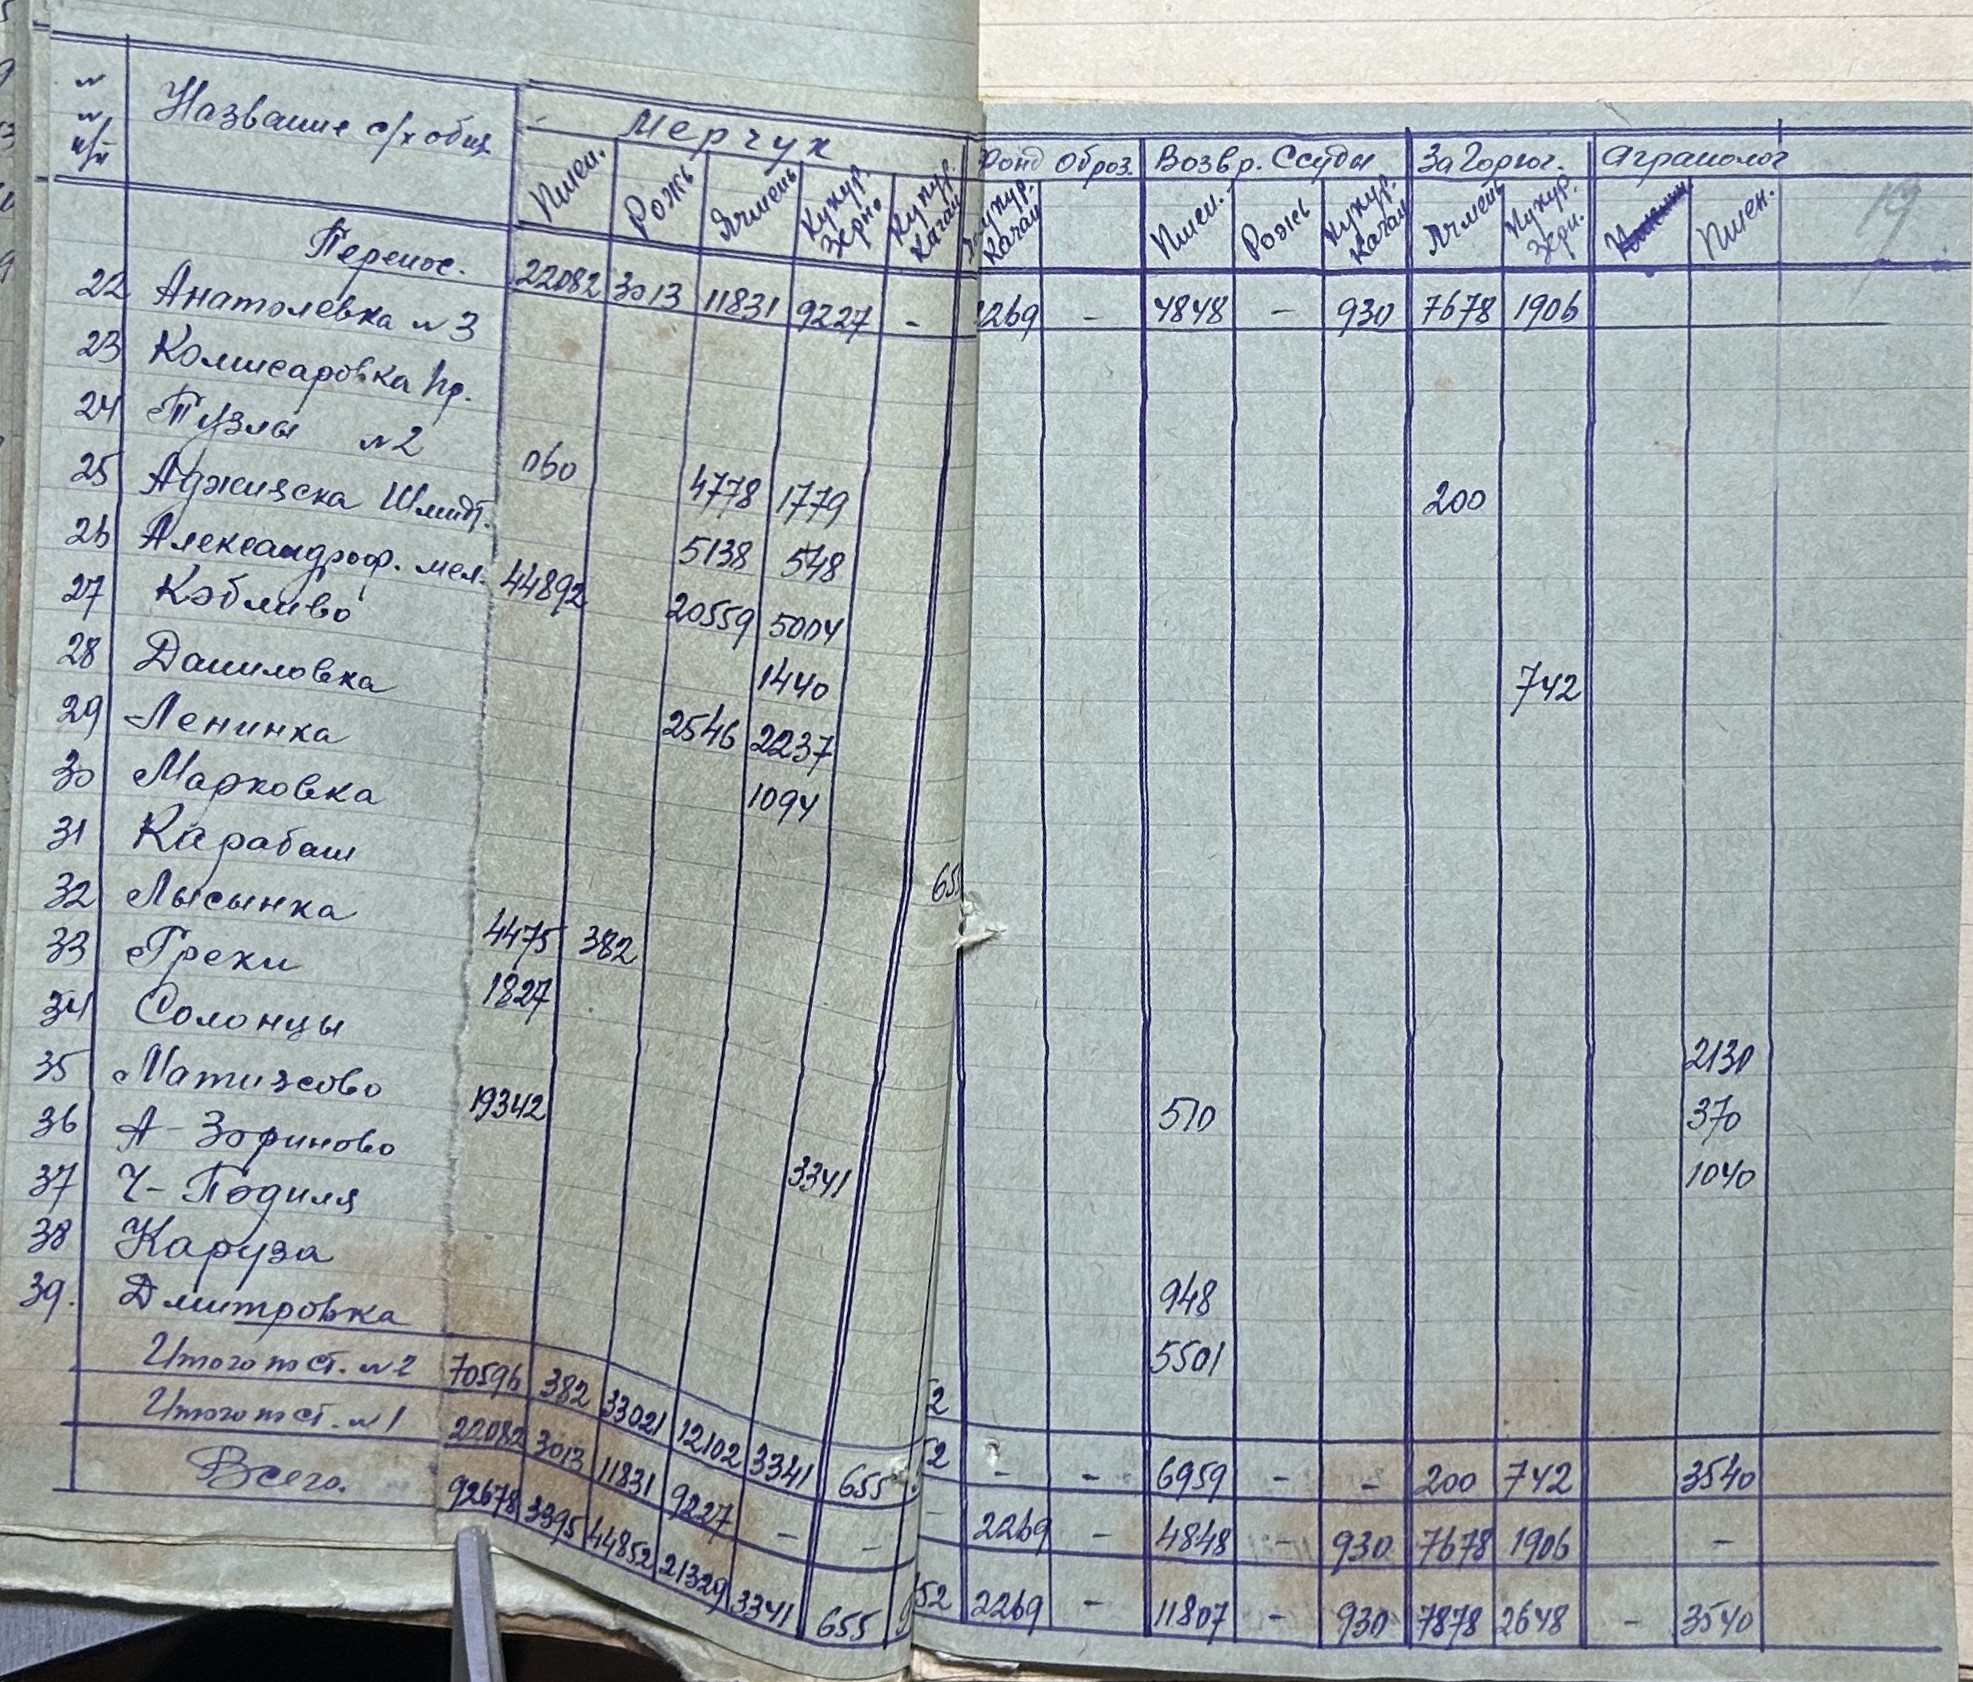 № № п/п Название с/х общ. Мерчук Фонд оброз. Возвр. Ссуды За Горюч. Агрополог
Пшен. Рожь Ячмень Кукур. Зерно Кукур. Качан Кукур. Качан Пшен. Рожь Кукур. Качан Ячмень Кукур. Зерн. Пшен. 19
Перенос. 22082 3013 11831 9227 - 2269 - 4848 - 930 7678 1906
22 Анатолевка №3
23 Комисаровка Кр.
24 Тузлы №2 060 4778 1779 200
25 Аджияска Шмидт. 5138 548
26 Александроф. мел. 44892 20559 5004
27 Кобливо 1440 742
28 Даниловка 2546 2237
29 Ленинка 1094
30 Марковка
31 Карабаш 65
32 Лысынка 4475 382
33 Грехи 1827
34 Солонцы 2130
35 Матизсово 19342 510 370
36 А-Зориново 3341 1040
37 Ч-Подиля
38 Каруза 948
39. Дмитровка 5501
Итого по ст. №2 70596 382 33021 12102 3341 655 - - 6959 - - 200 742 3540
Итого по ст. №1 22082 3013 11831 9227 - - - 2269 - 4848 - 930 7678 1906 -
Всего. 92678 3395 44852 21329 3341 655 52 2269 - 11807 - 930 7878 2648 - 3540